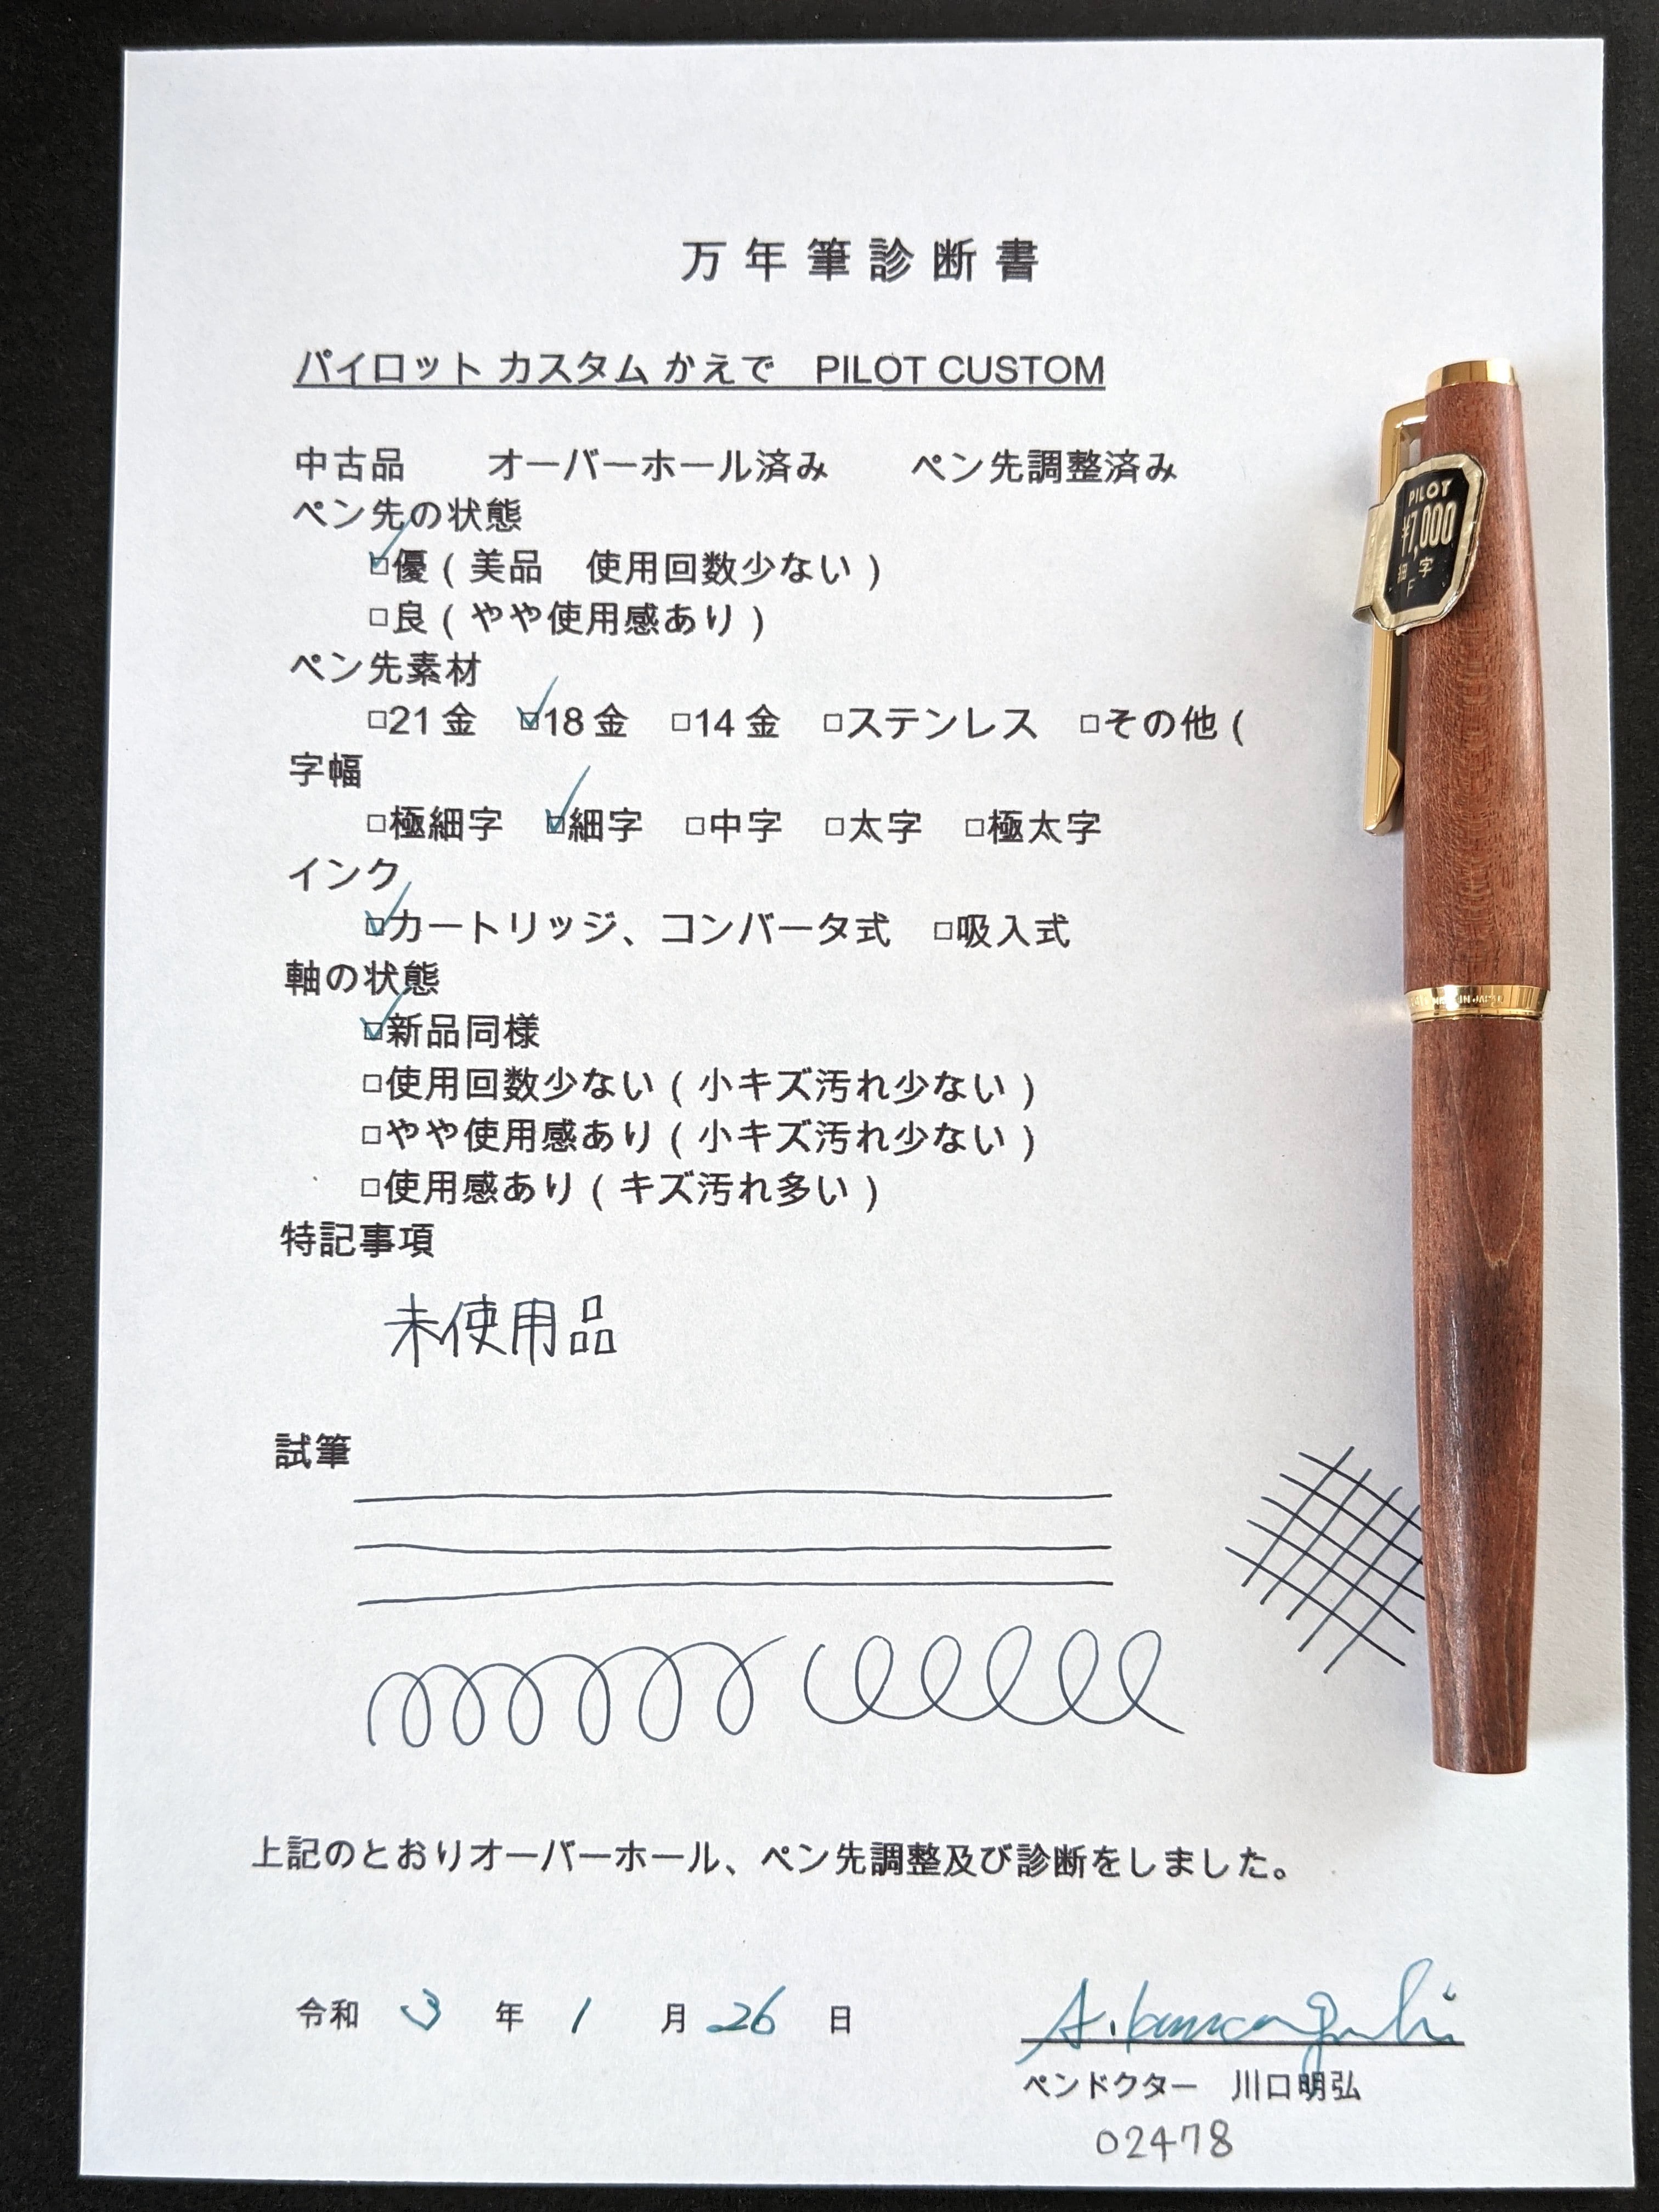 万年筆診断書
パイロット カスタム かえで　PILOT CUSTOM
中古品　オーバーホール済み　ペン先調整済み
ペン先の状態
☑優（美品　使用回数少ない）
□良（やや使用感あり）
ペン先素材
□21金　☑18金　□14金　□ステンレス　□その他（
字幅
□極細字　☑細字　□中字　□太字　□極太字
インク
☑カートリッジ、コンバータ式　□吸入式
軸の状態
☑新品同様
□使用回数少ない（小キズ汚れ少ない）
□やや使用感あり（小キズ汚れ少ない）
□使用感あり（キズ汚れ多い）
特記事項
未使用品
試筆
上記のとおりオーバーホール、ペン先調整及び診断をしました。
令和 3 年 1 月 26 日
A. Kawaguchi
ペンドクター　川口明弘
02478
PILOT
¥7,000
細字
F